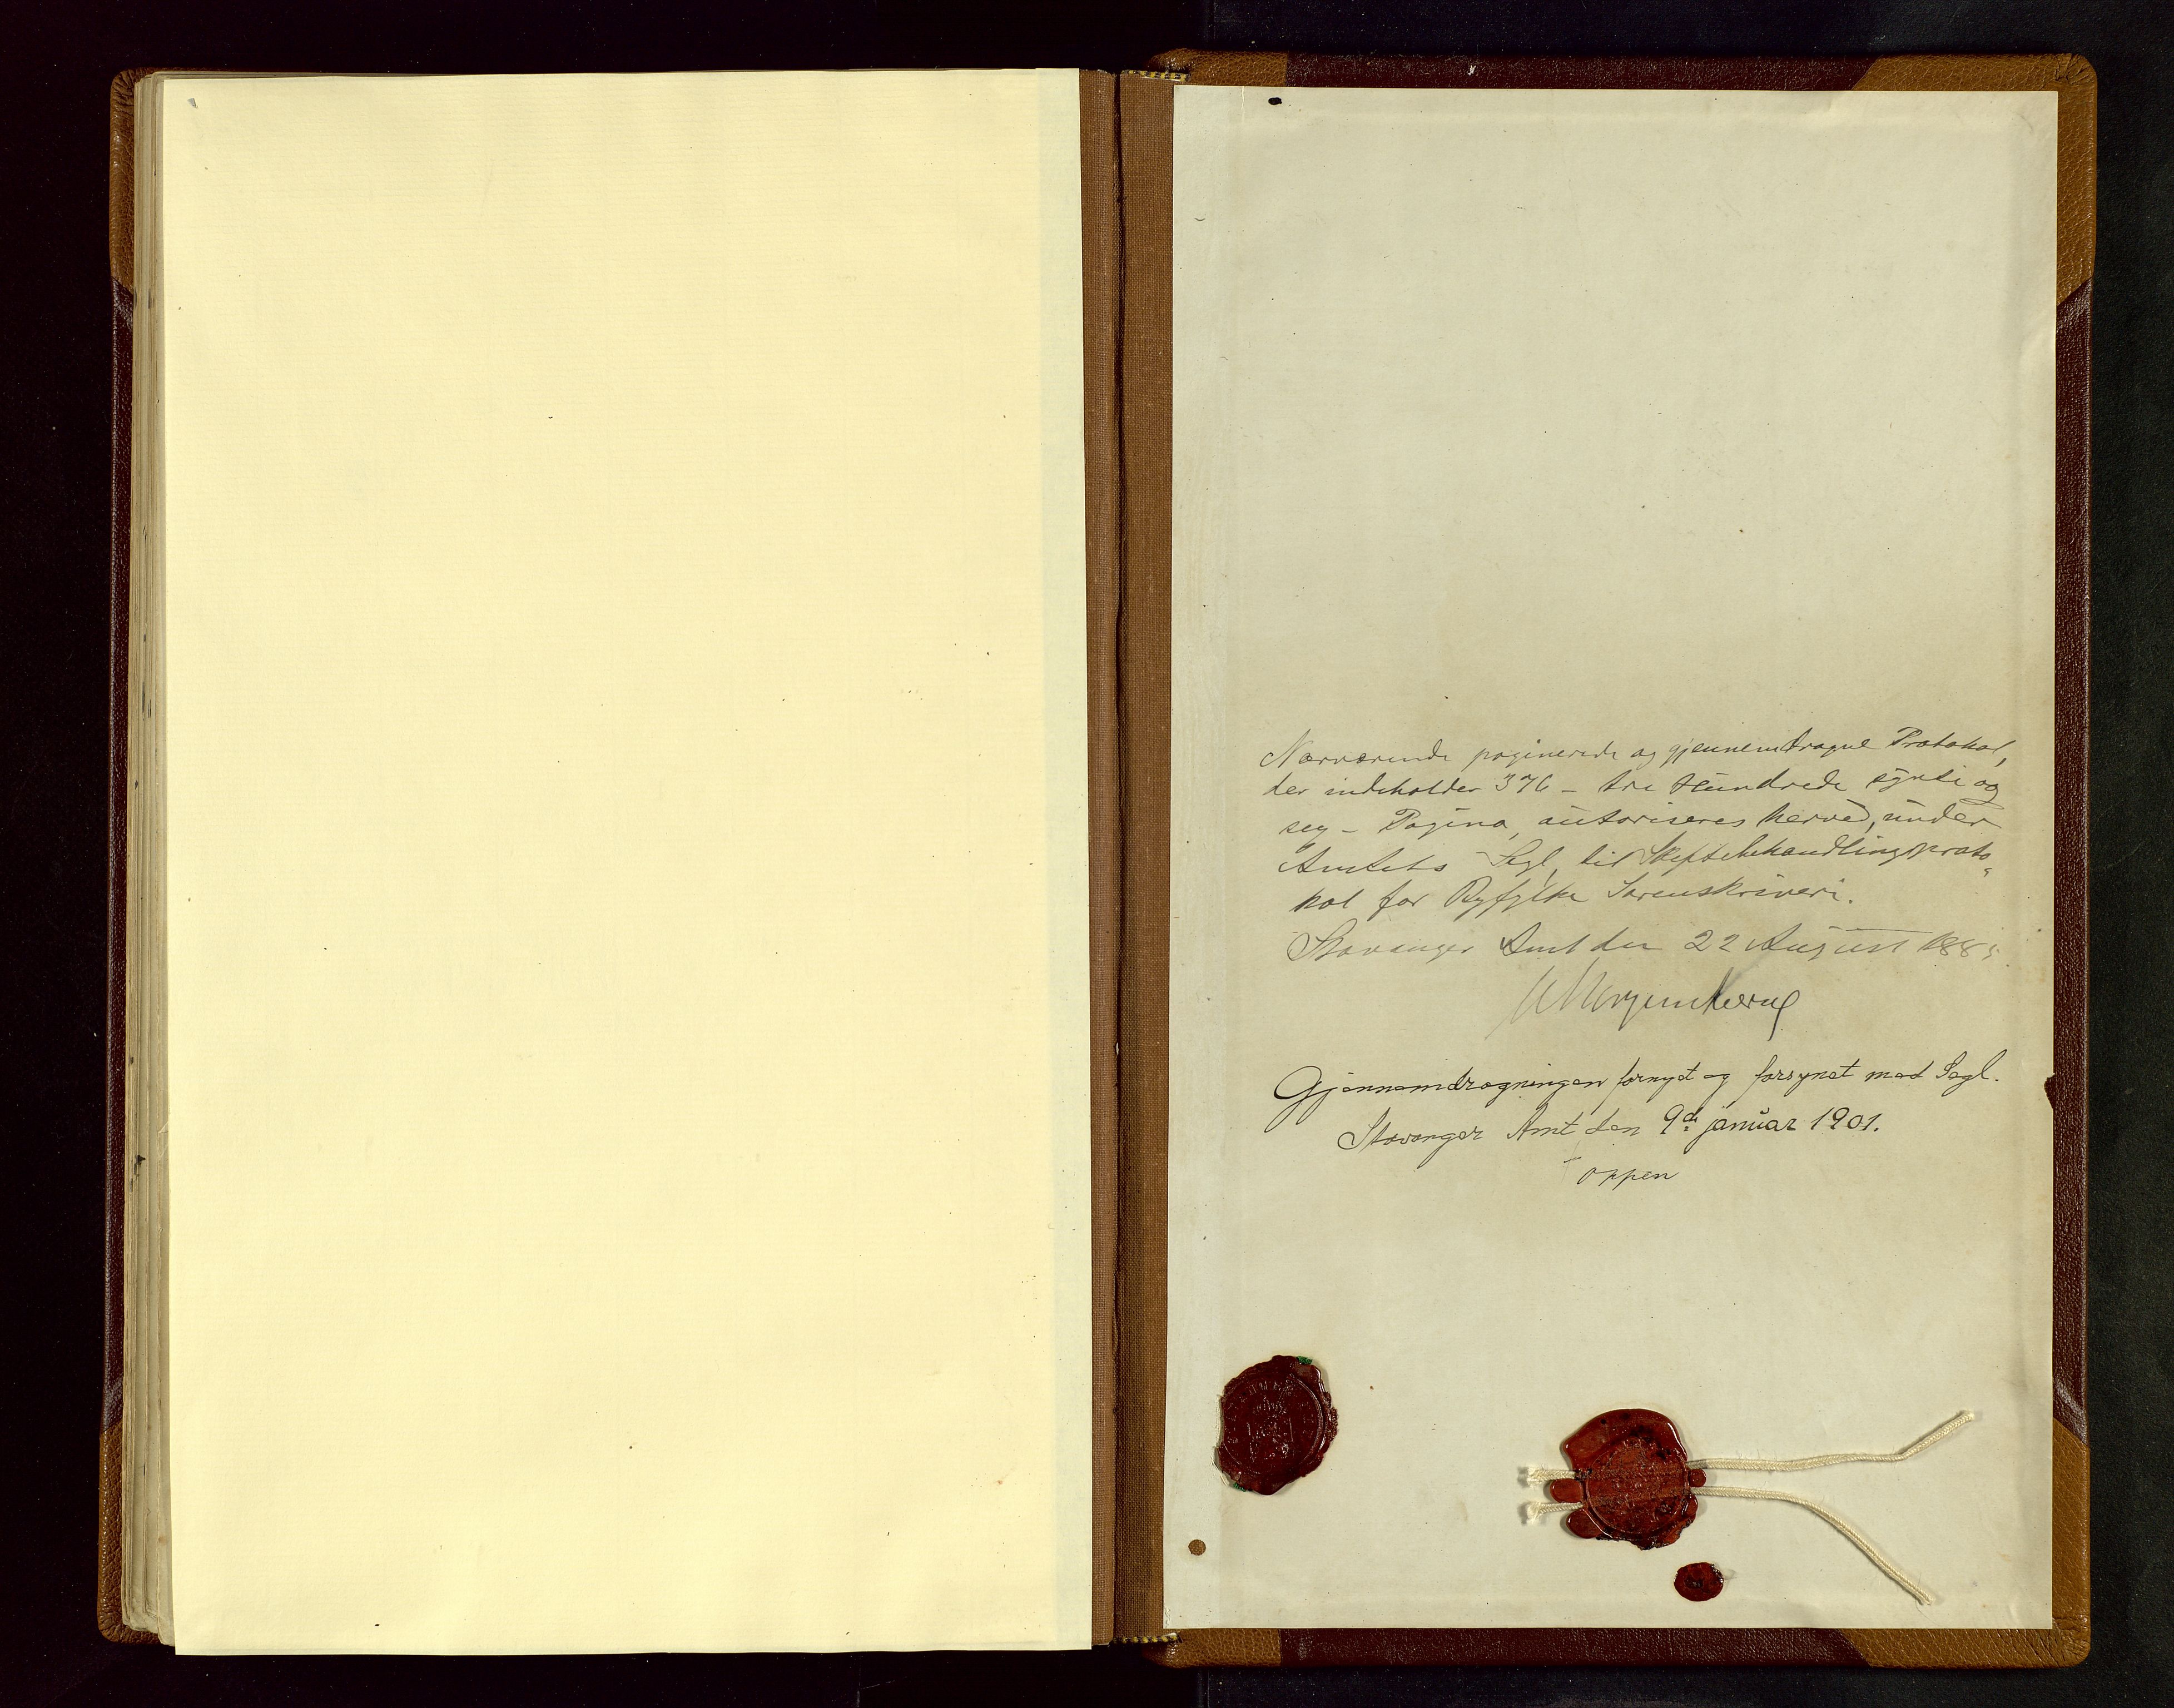 Nærværende paginerede og gjennemdragne Protokol,
der indeholder 376 - tre Hundrede sytti og
sex - Pagina, autoriseres herved, under
Amtets Segl, til Skiftebehandlingsproto„
kol for Ryfylke Sorenskriveri.
Stavanger Amt den 22 August 1885.
Gjennemdragningen fornyet og forsynet med Segl.
Stavanger Amt den 9de januar 1901.
Oppen